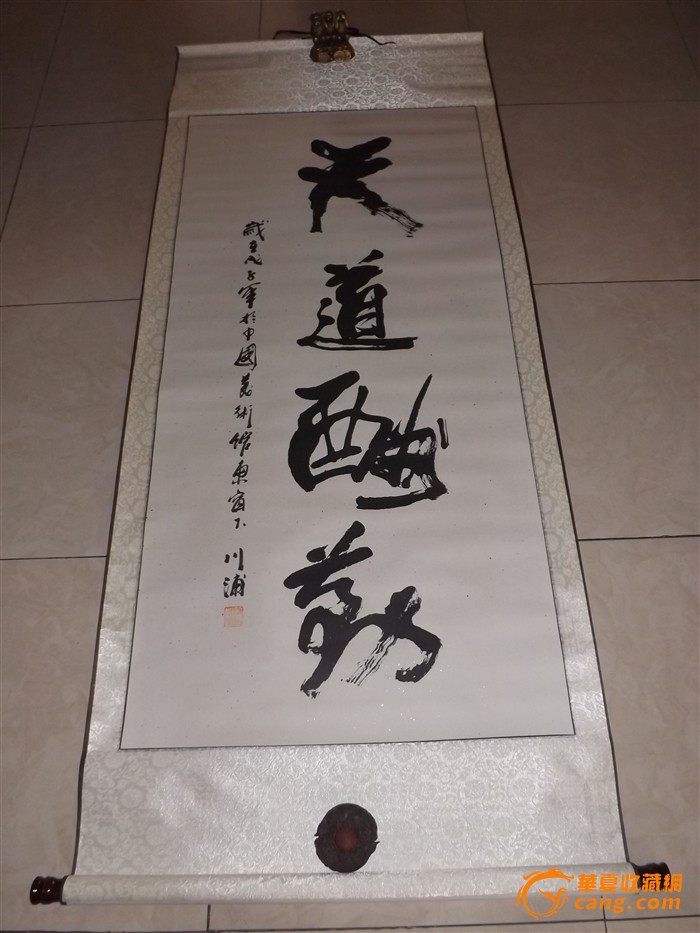 天道酬勤
歲戊子於中國美術館東窗下 川浦
華夏收藏網
cang.com